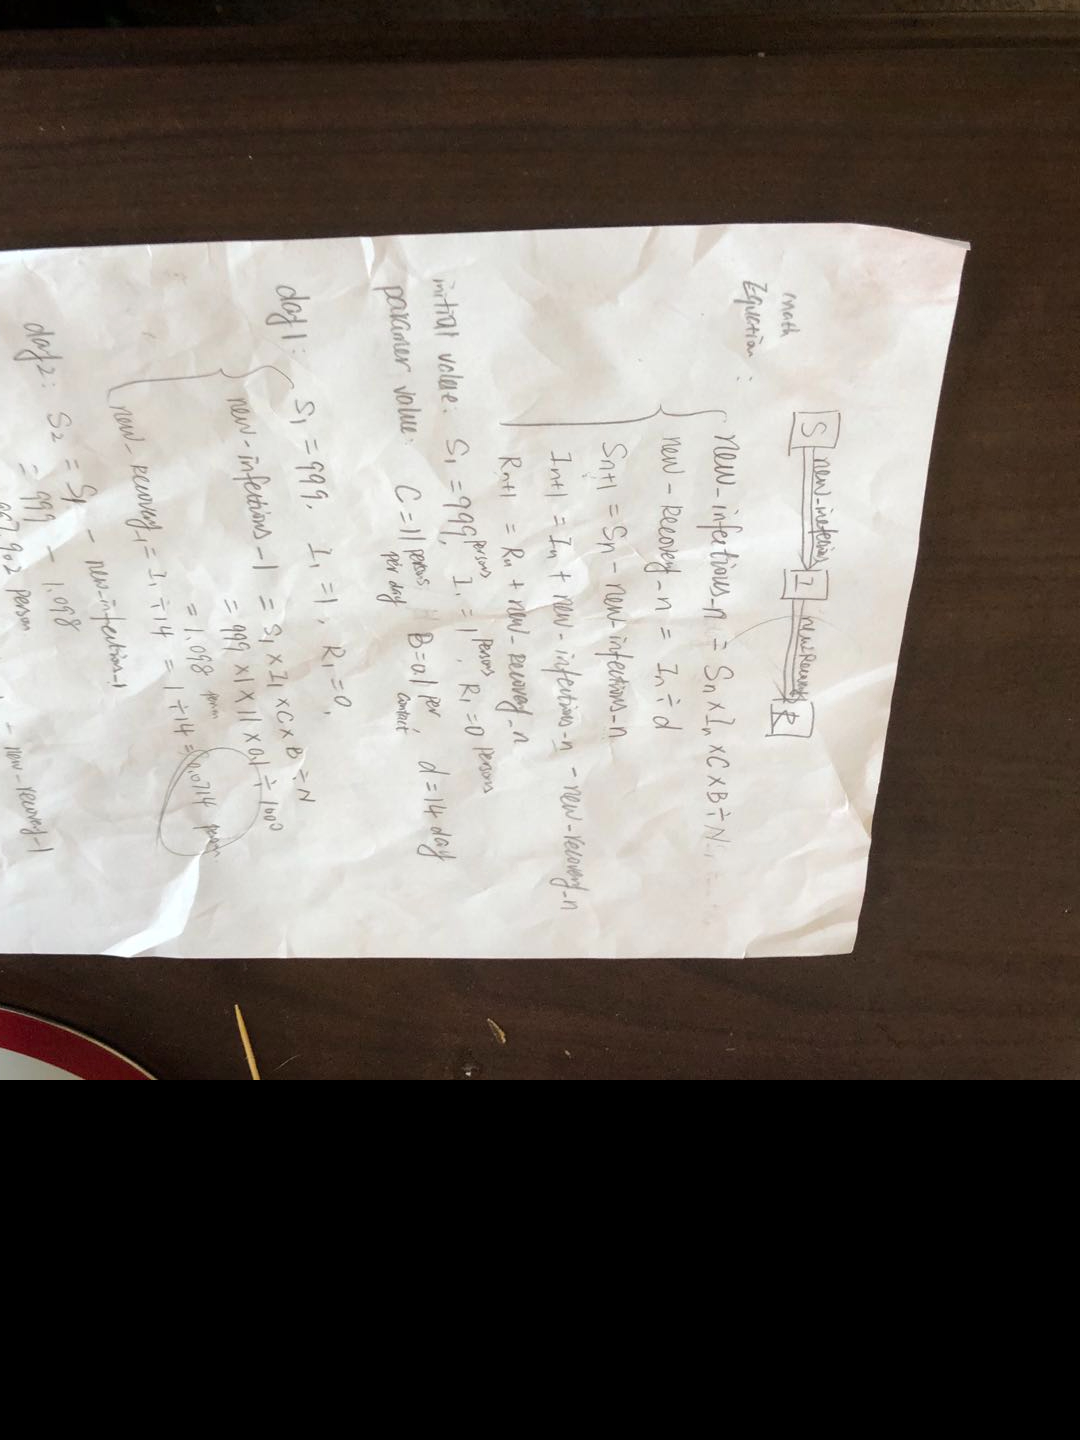 math
Equation :
S new-infections I new Recovery R
new-infections-n = Sn × In × C × B ÷ N
new-Recovery-n = In ÷ d
Sn+1 = Sn - new-infections-n
In+1 = In + new-infections-n - new-recovery-n
Rn+1 = Rn + new-recovery-n
initial value: S1 = 999, persons I1 = 1, persons R1 = 0 persons
paramer value: C = 11 persons per day B = 0.1 per contact d = 14 day
day1: S1 = 999, I1 = 1, R1 = 0,
new-infections-1 = S1 × I1 × C × B ÷ N
= 999 × 1 × 11 × 0.1 ÷ 1000
= 1.098 person
new-recovery-1 = I1 ÷ 14 = 1 ÷ 14 = 0.0714 person
day2: S2 = S1 - new-infections-1
= 999 - 1.098
.902 person
- new-recovery-1